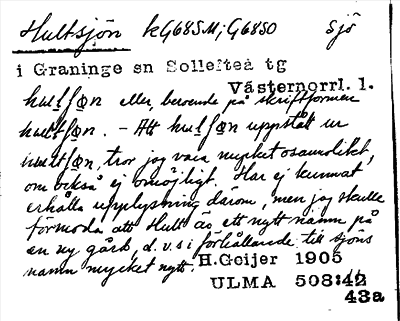 Hultsjön kG685M; G68SO sjö
i Graninge sn Sollefteå tg
Västernorrl. l.
hulføn eller, beroende på skriftformen
hultføn. – Att hulføn uppstått ur
hultføn, tror jag vara mycket osannolikt,
om också ej omöjligt. Har ej kunnat
erhålla upplysning därom, men jag skulle
förmoda att Hult är ett nytt namn på
en ny gård, d.v.s. i förhållande till sjöns
namn mycket nytt. H.Geijer 1905
ULMA 508:42
43a